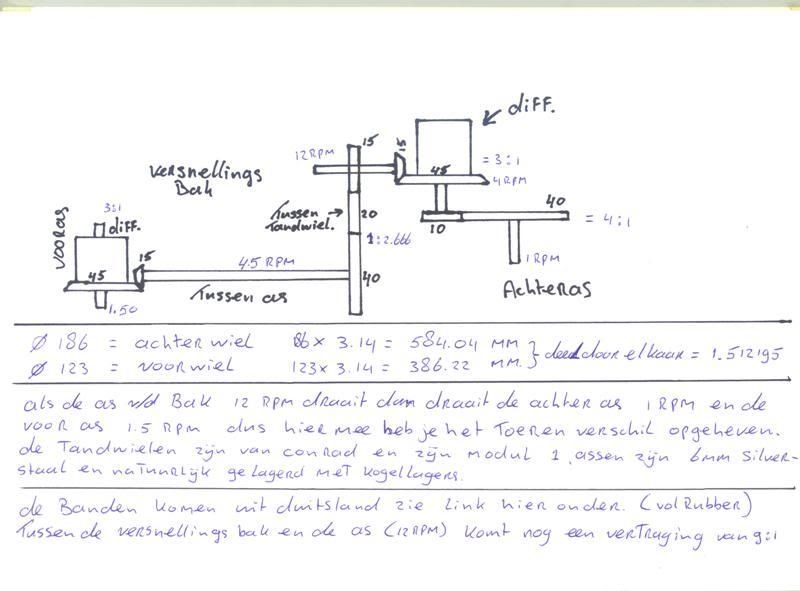 diff.
15
12 RPM
15
versnellings
Bak
45
= 3:1
4 RPM
3:1
Tussen
Tandwiel.
20
40
VOORAS
diff.
10
= 4:1
1:2.666
15
4.5 RPM
1 RPM
45
40
Tussen as
Achteras
1.50
Ø 186 = achterwiel 186 x 3.14 = 584.04 MM
Ø 123 = voorwiel 123 x 3.14 = 386.22 MM. } deel door elkaar = 1.512195
als de as v/d Bak 12 RPM draait dan draait de achter as 1 RPM en de
voor as 1.5 RPM dus hier mee heb je het Toeren verschil opgeheven.
de Tandwielen zijn van conrad en zijn modul 1, assen zijn 6mm silver-
staal en natuurlijk gelagerd met kogellagers.
de Banden komen uit duitsland zie link hier onder. (vol Rubber)
Tussen de versnellings bak en de as (12 RPM) komt nog een verTraging van 9:1